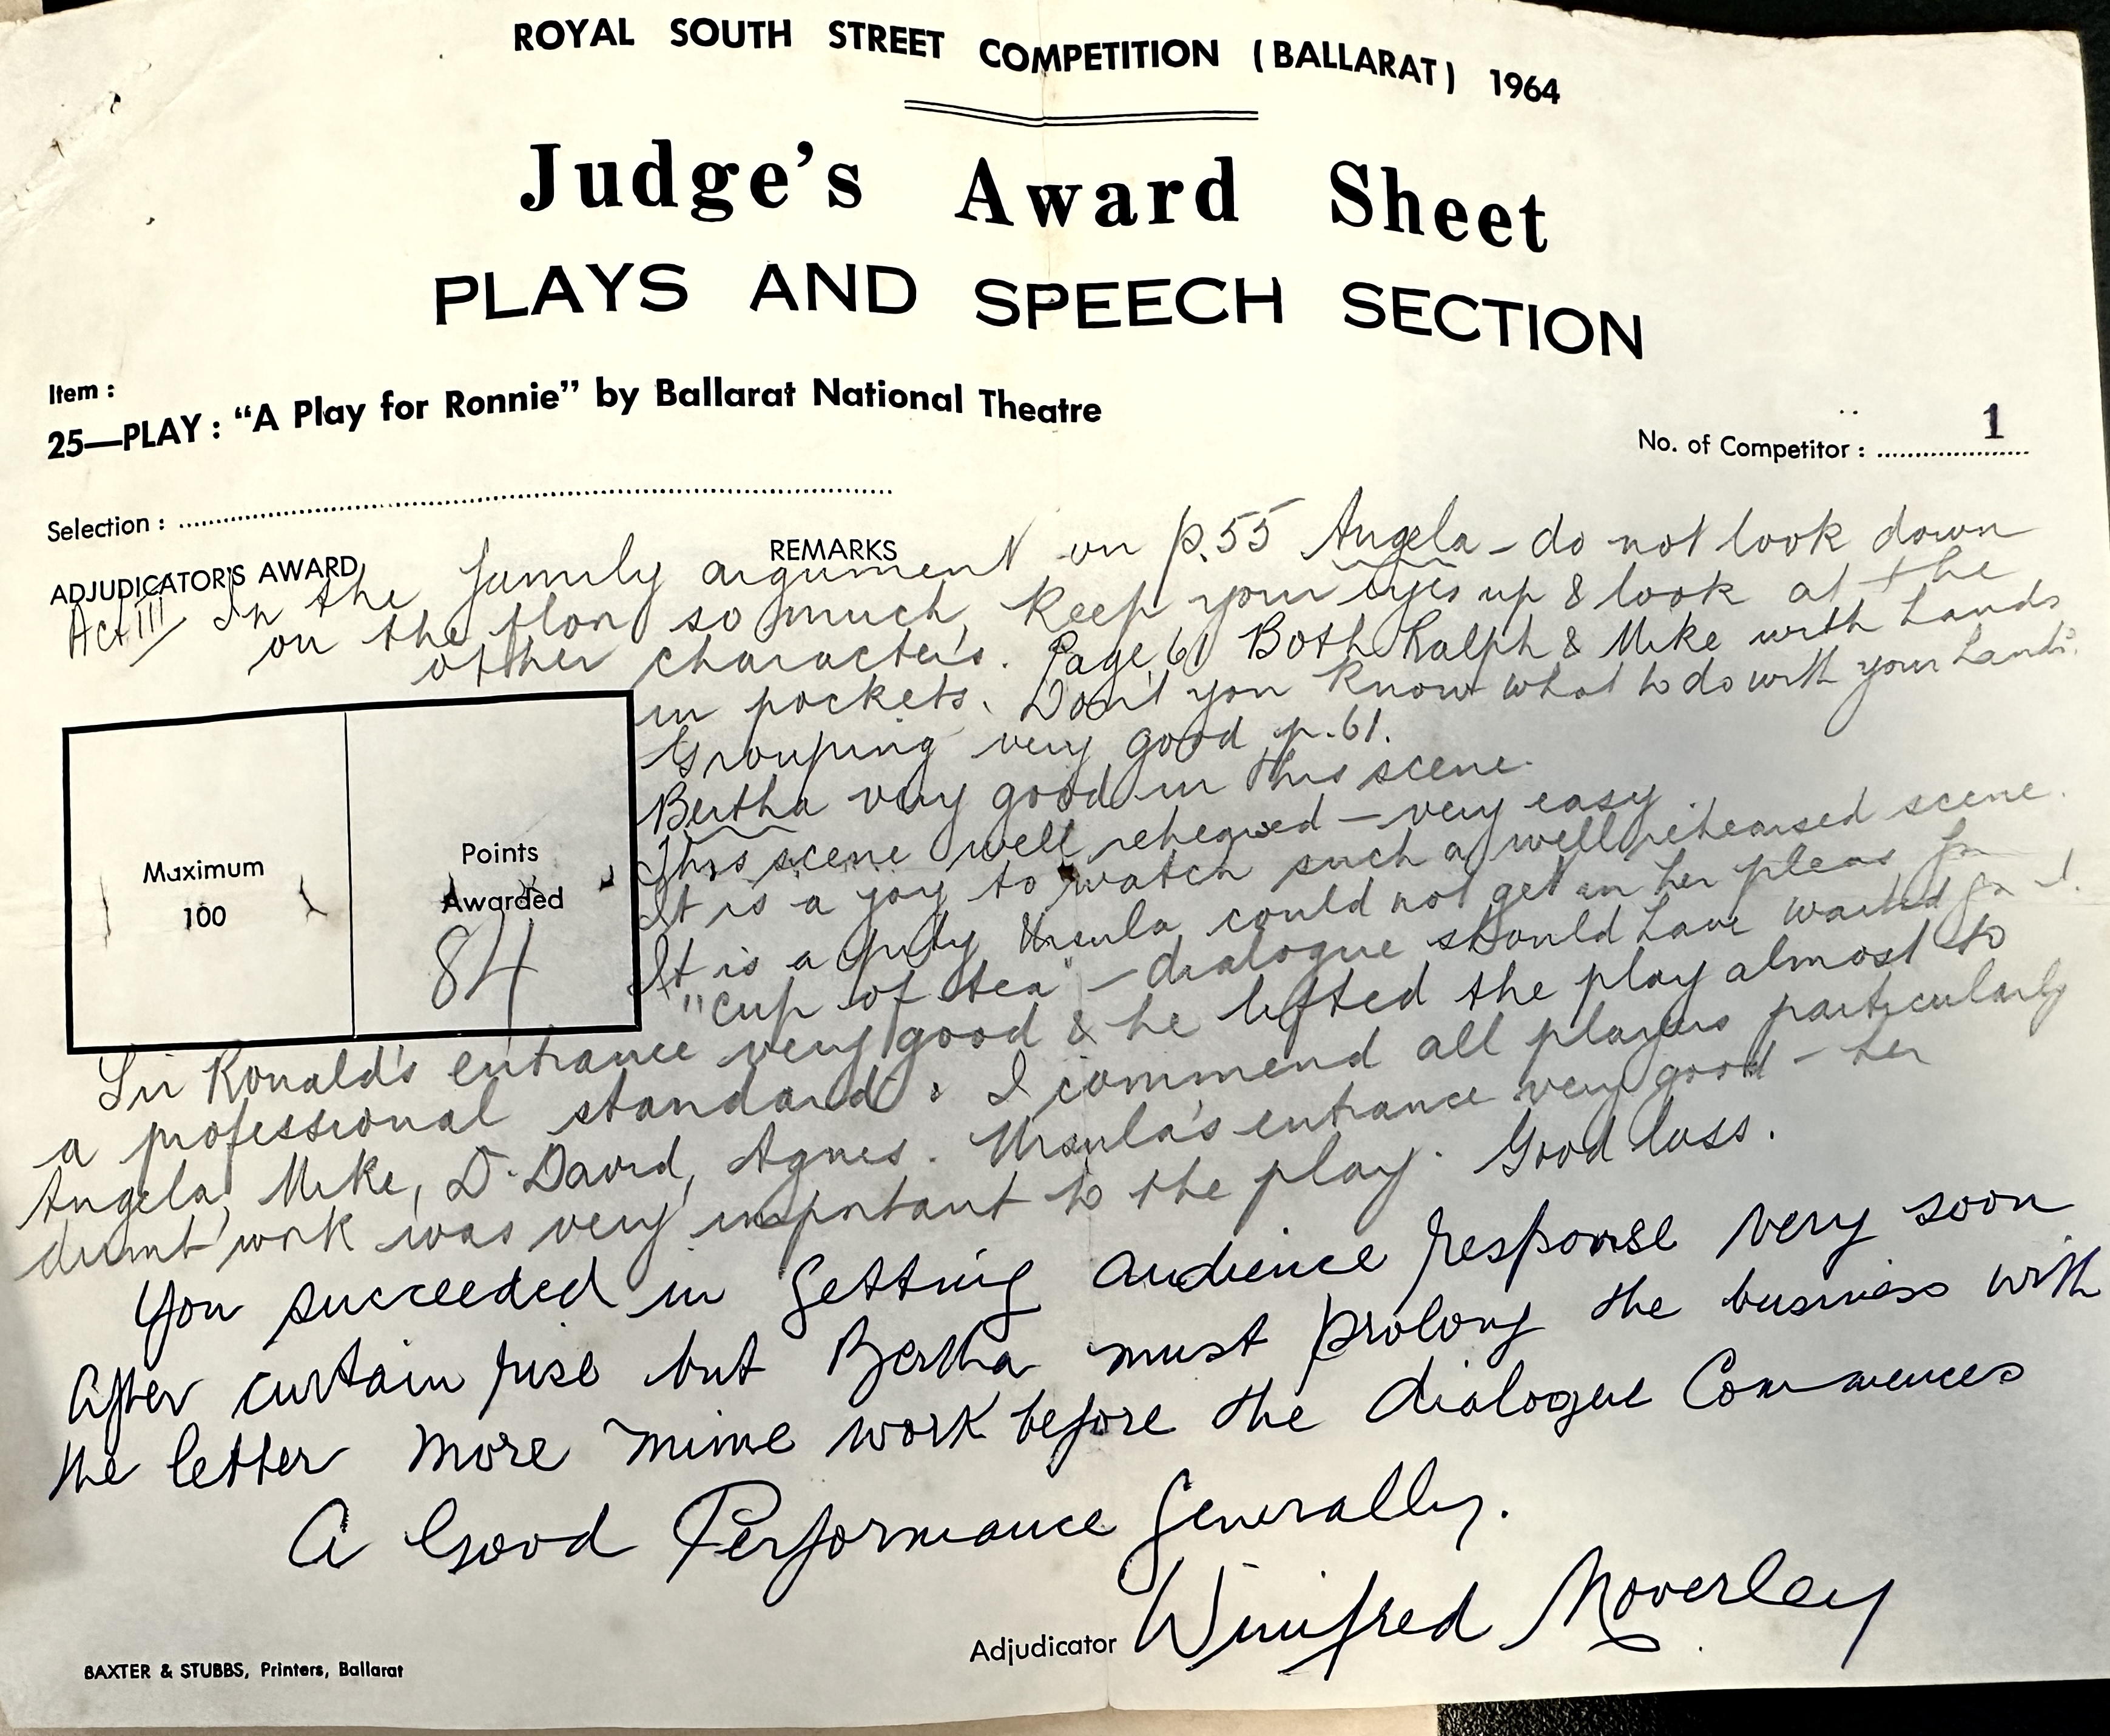 ROYAL SOUTH STREET COMPETITION (BALLARAT) 1964
Judge's Award Sheet
PLAYS AND SPEECH SECTION
Item :
25—PLAY : “A Play for Ronnie” by Ballarat National Theatre
No. of Competitor : 1
Selection :
ADJUDICATOR'S AWARD REMARKS
Act III In the family argument on p.55 Angela - do not look down
on the floor so much, keep your eyes up & look at the
other characters. Page 61 Both Ralph & Mike with hands
in pockets. Don't you know what to do with your hands?
Grouping very good p.61.
Bertha very good in this scene.
This scene well rehearsed — very easy.
It is a joy to watch such a well rehearsed scene.
It is a pity Ursula could not get in her pleas for
"cup of tea" — dialogue should have waited for it.
Maximum
100
Points
Awarded
84
Sir Ronald's entrance very good & he lifted the play almost to
a professional standard. I commend all players particularly
Angela, Mike, D. David, Agnes. Ursula's entrance very good - her
dumb work was very important to the play. Good
You succeeded in getting audience response very soon
after curtain rise but Bertha must prolong the business with
the letter more mime work before the dialogue Commences
A Good Performance Generally.
Adjudicator Winifred Moverley
BAXTER & STUBBS, Printers, Ballarat